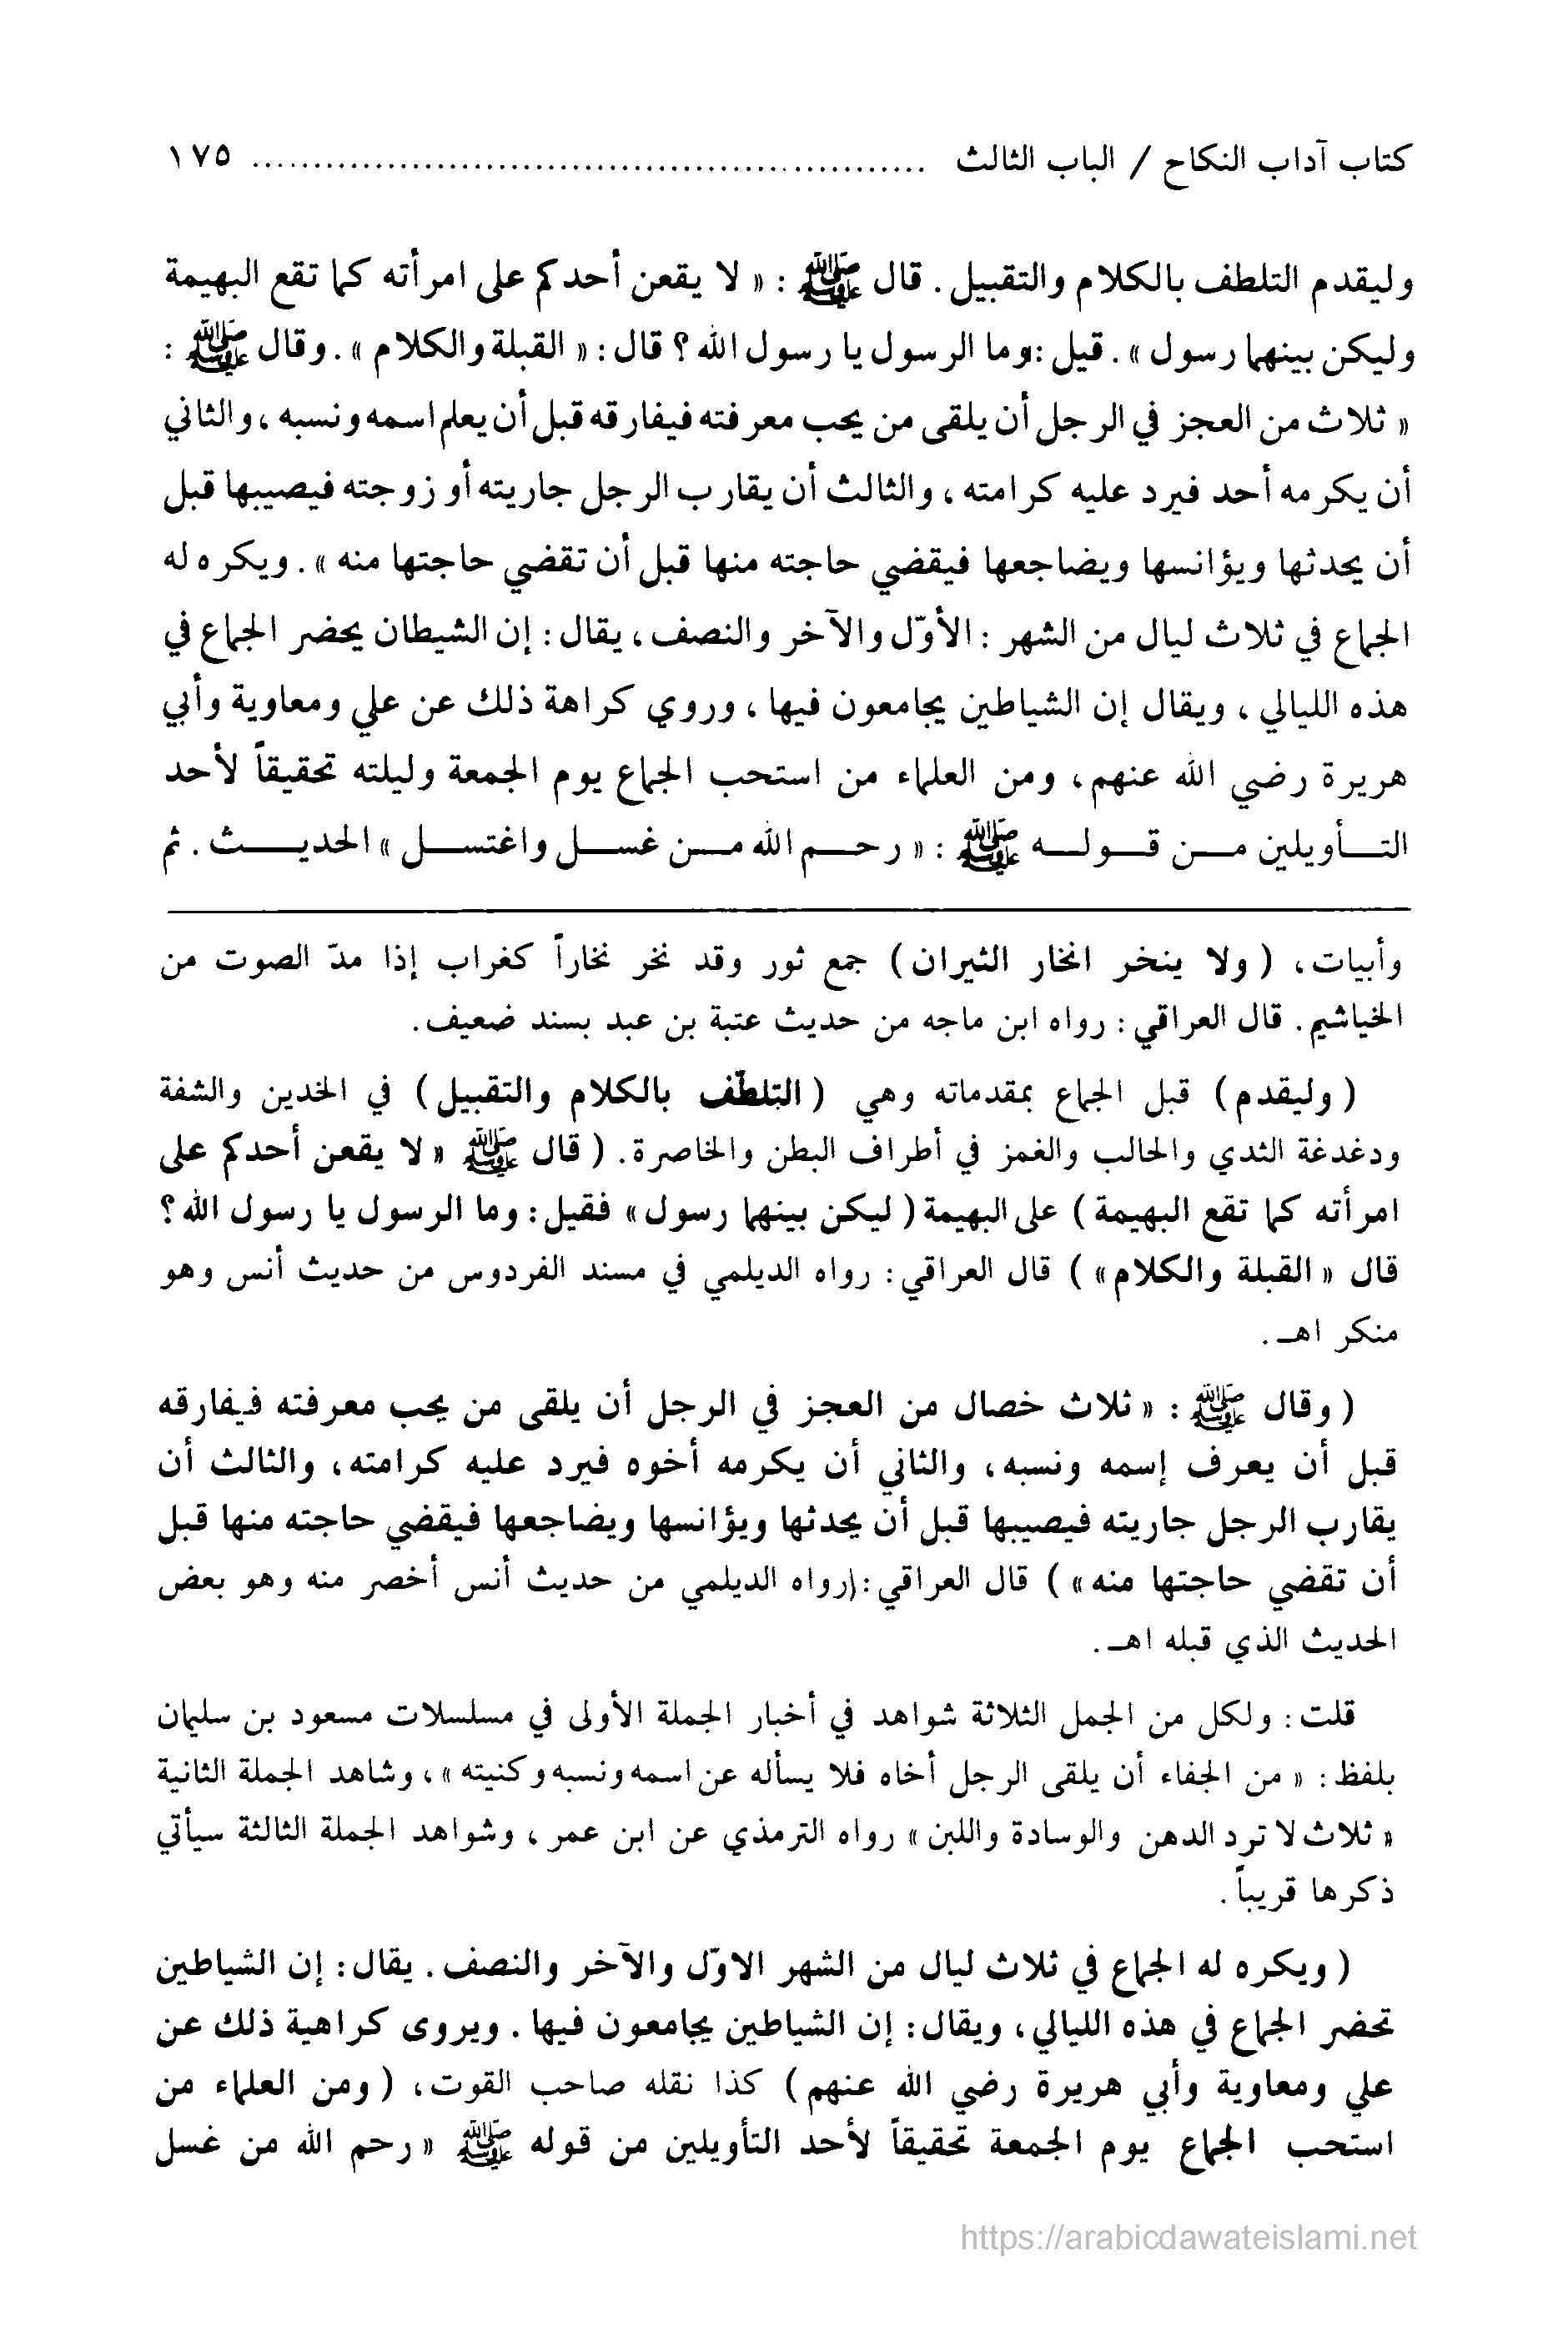 كتاب آداب النكاح / الباب الثالث ........................................................ ١٧٥
وليقدم التلطف بالكلام والتقبيل. قال ﷺ : « لا يقعن أحدكم على امرأته كما تقع البهيمة
وليكن بينهما رسول ». قيل: وما الرسول يا رسول الله ؟ قال: « القبلة والكلام ». وقال ﷺ :
« ثلاث من العجز في الرجل أن يلقى من يحب معرفته فيفارقه قبل أن يعلم اسمه ونسبه ، والثاني
أن يكرمه أحد فيرد عليه كرامته ، والثالث أن يقارب الرجل جاريته أو زوجته فيصيبها قبل
أن يحدثها ويؤانسها ويضاجعها فيقضي حاجته منها قبل أن تقضي حاجتها منه ». ويكره له
الجماع في ثلاث ليال من الشهر : الأوّل والآخر والنصف ، يقال: إن الشيطان يحضر الجماع في
هذه الليالي ، ويقال إن الشياطين يجامعون فيها ، وروي كراهة ذلك عن علي ومعاوية وأبي
هريرة رضي الله عنهم، ومن العلماء من استحب الجماع يوم الجمعة وليلته تحقيقاً لأحد
التـأويلين مـن قـولـه ﷺ : « رحـم الله مـن غسـل واغتسـل » الحديـث . ثم
وأبيات، ( ولا ينخر انخار الثيران ) جمع ثور وقد نخر نخاراً كغراب إذا مدّ الصوت من
الخياشيم. قال العراقي: رواه ابن ماجه من حديث عتبة بن عبد بسند ضعيف.
( وليقدم ) قبل الجماع بمقدماته وهي ( التلطّف بالكلام والتقبيل ) في الخدين والشفة
ودغدغة الثدي والحالب والغمز في أطراف البطن والخاصرة. ( قال ﷺ « لا يقعن أحدكم على
امرأته كما تقع البهيمة ) على البهيمة ( ليكن بينهما رسول » فقيل: وما الرسول يا رسول الله ؟
قال « القبلة والكلام» ) قال العراقي: رواه الديلمي في مسند الفردوس من حديث أنس وهو
منكر اهـ.
( وقال ﷺ : « ثلاث خصال من العجز في الرجل أن يلقى من يحب معرفته فيفارقه
قبل أن يعرف إسمه ونسبه، والثاني أن يكرمه أخوه فيرد عليه كرامته، والثالث أن
يقارب الرجل جاريته فيصيبها قبل أن يحدثها ويؤانسها ويضاجعها فيقضي حاجته منها قبل
أن تقضي حاجتها منه» ) قال العراقي:(رواه الديلمي من حديث أنس أخصر منه وهو بعض
الحديث الذي قبله اهـ.
قلت: ولكل من الجمل الثلاثة شواهد في أخبار الجملة الأولى في مسلسلات مسعود بن سليمان
بلفظ: « من الجفاء أن يلقى الرجل أخاه فلا يسأله عن اسمه ونسبه وكنيته »، وشاهد الجملة الثانية
« ثلاث لا ترد الدهن والوسادة واللبن » رواه الترمذي عن ابن عمر ، وشواهد الجملة الثالثة سيأتي
ذكرها قريباً.
( ويكره له الجماع في ثلاث ليال من الشهر الاوّل والآخر والنصف. يقال: إن الشياطين
تحضر الجماع في هذه الليالي، ويقال: إن الشياطين يجامعون فيها . ويروى كراهية ذلك عن
علي ومعاوية وأبي هريرة رضي الله عنهم ) كذا نقله صاحب القوت، ( ومن العلماء من
استحب الجماع يوم الجمعة تحقيقاً لأحد التأويلين من قوله ﷺ « رحم الله من غسل
https://arabicdawateislami.net